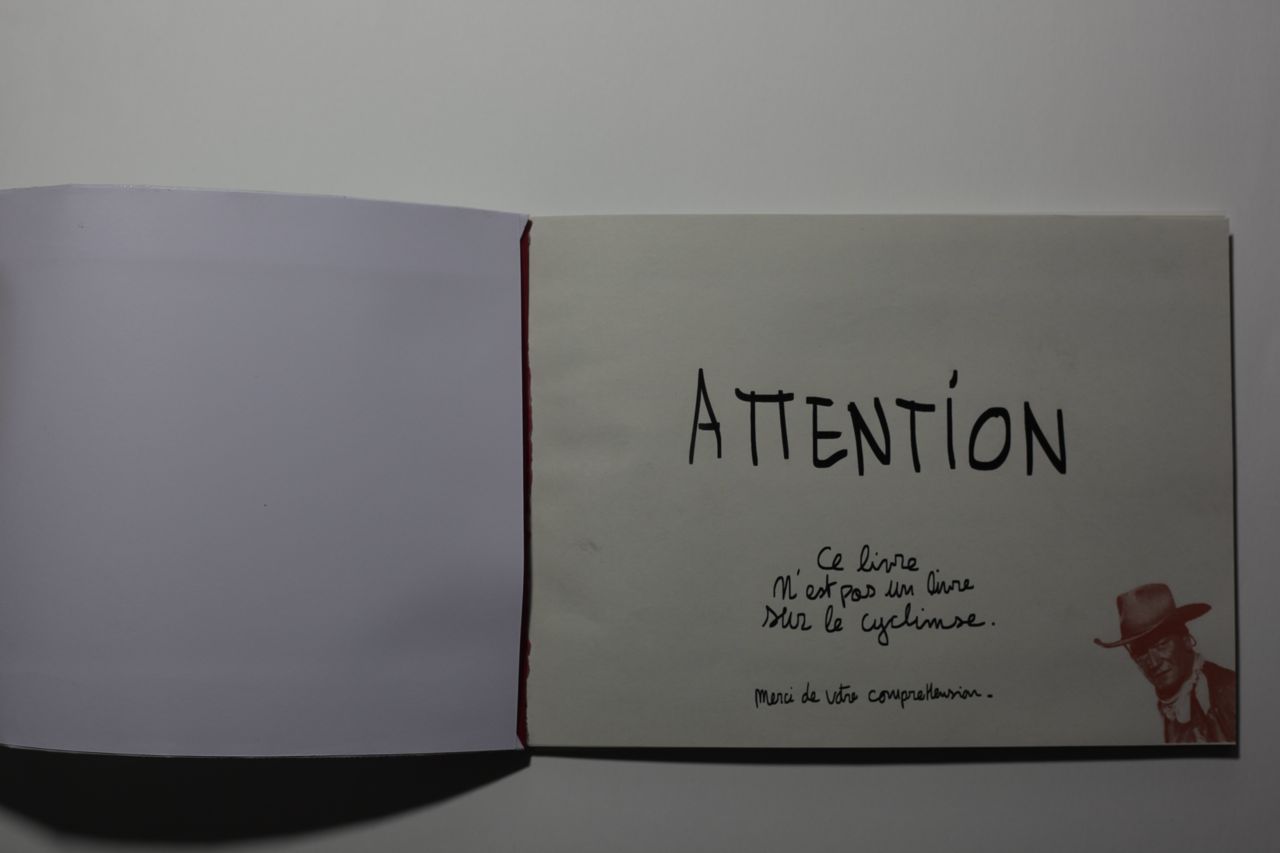 ATTENTION
Ce livre
N'est pas un livre
sur le cyclimse.
Merci de votre compreHension.